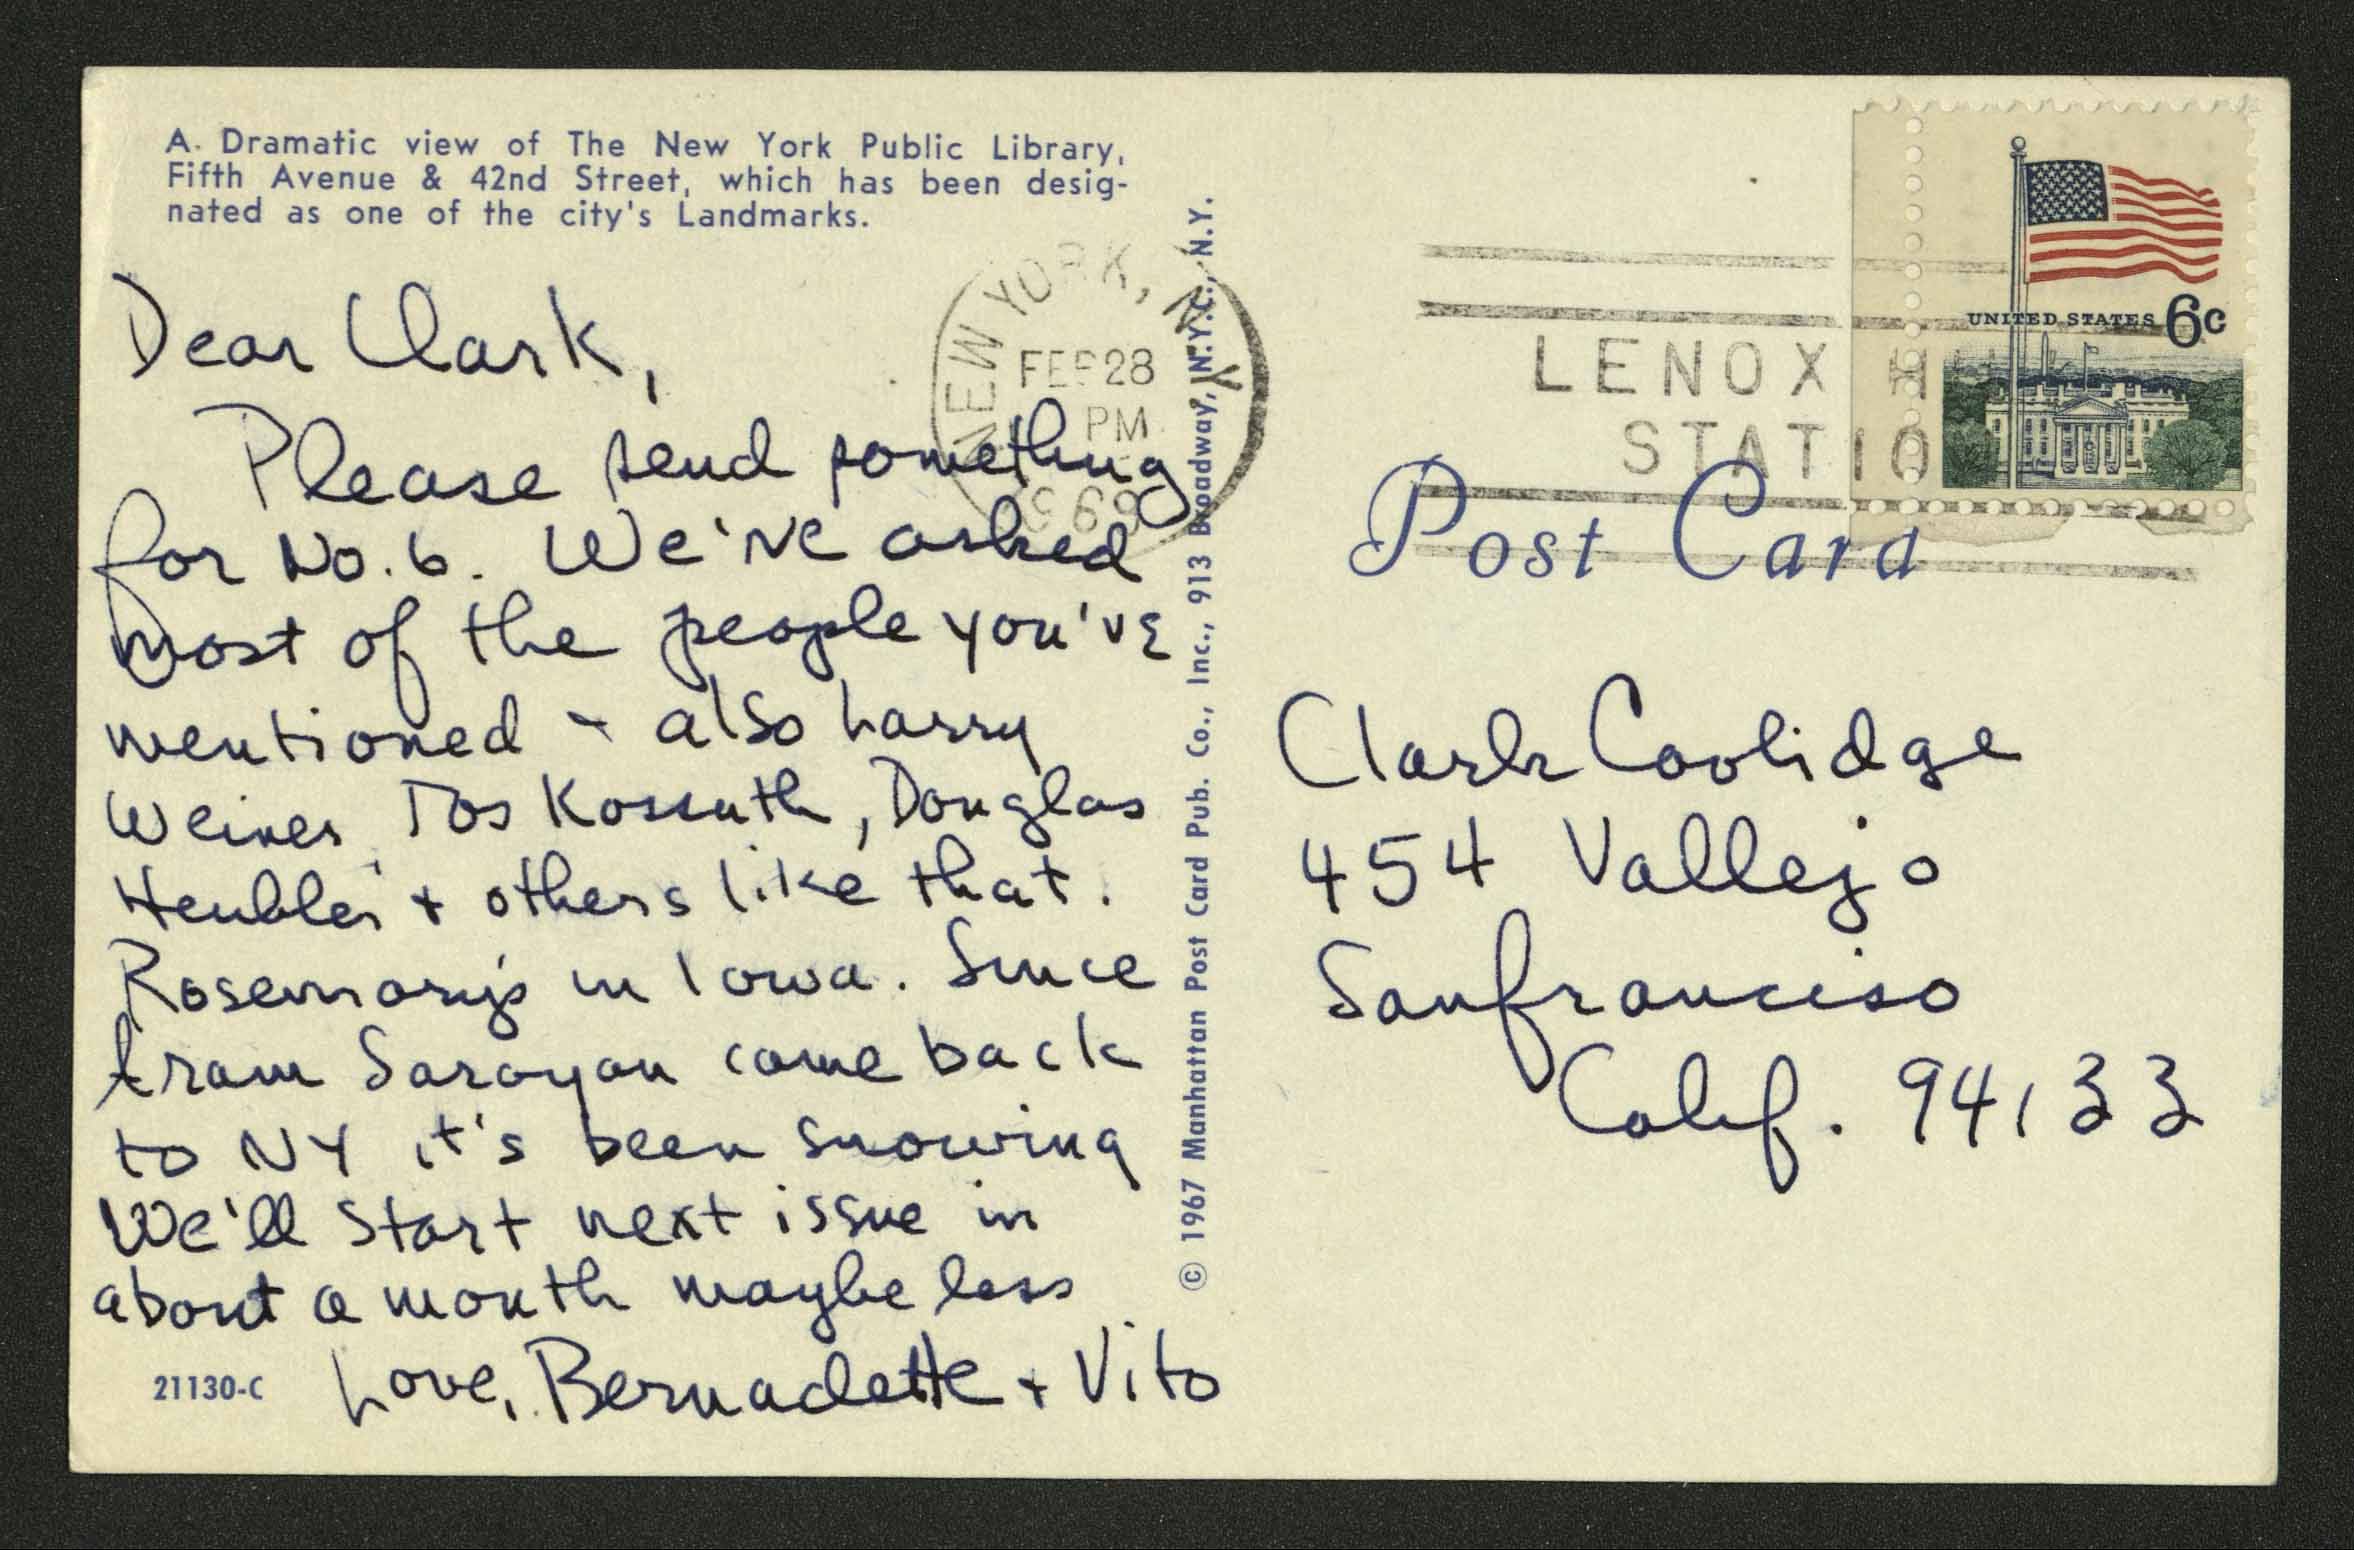 A. Dramatic view of The New York Public Library,
Fifth Avenue & 42nd Street, which has been desig-
nated as one of the city's Landmarks.
Dear Clark,
Please send something
for No. 6. We've asked
most of the people you've
mentioned - also Larry
Weiner, Tos Kossuth, Douglas
Heubler + others like that.
Rosemary's in Iowa. Since
Aram Saroyan came back
to NY it's been snowing
We'll start next issue in
about a month maybe less
Love, Bernadette + Vito
21130-C
© 1967 Manhattan Post Card Pub. Co., Inc., 913 Broadway, N.Y.C., N.Y.
NEW YORK, N.Y.
FEB 28
PM
1969
LENOX H
STATIO
UNITED STATES 6c
Post Card
Clark Coolidge
454 Vallejo
Sanfranciso
Calif. 94133